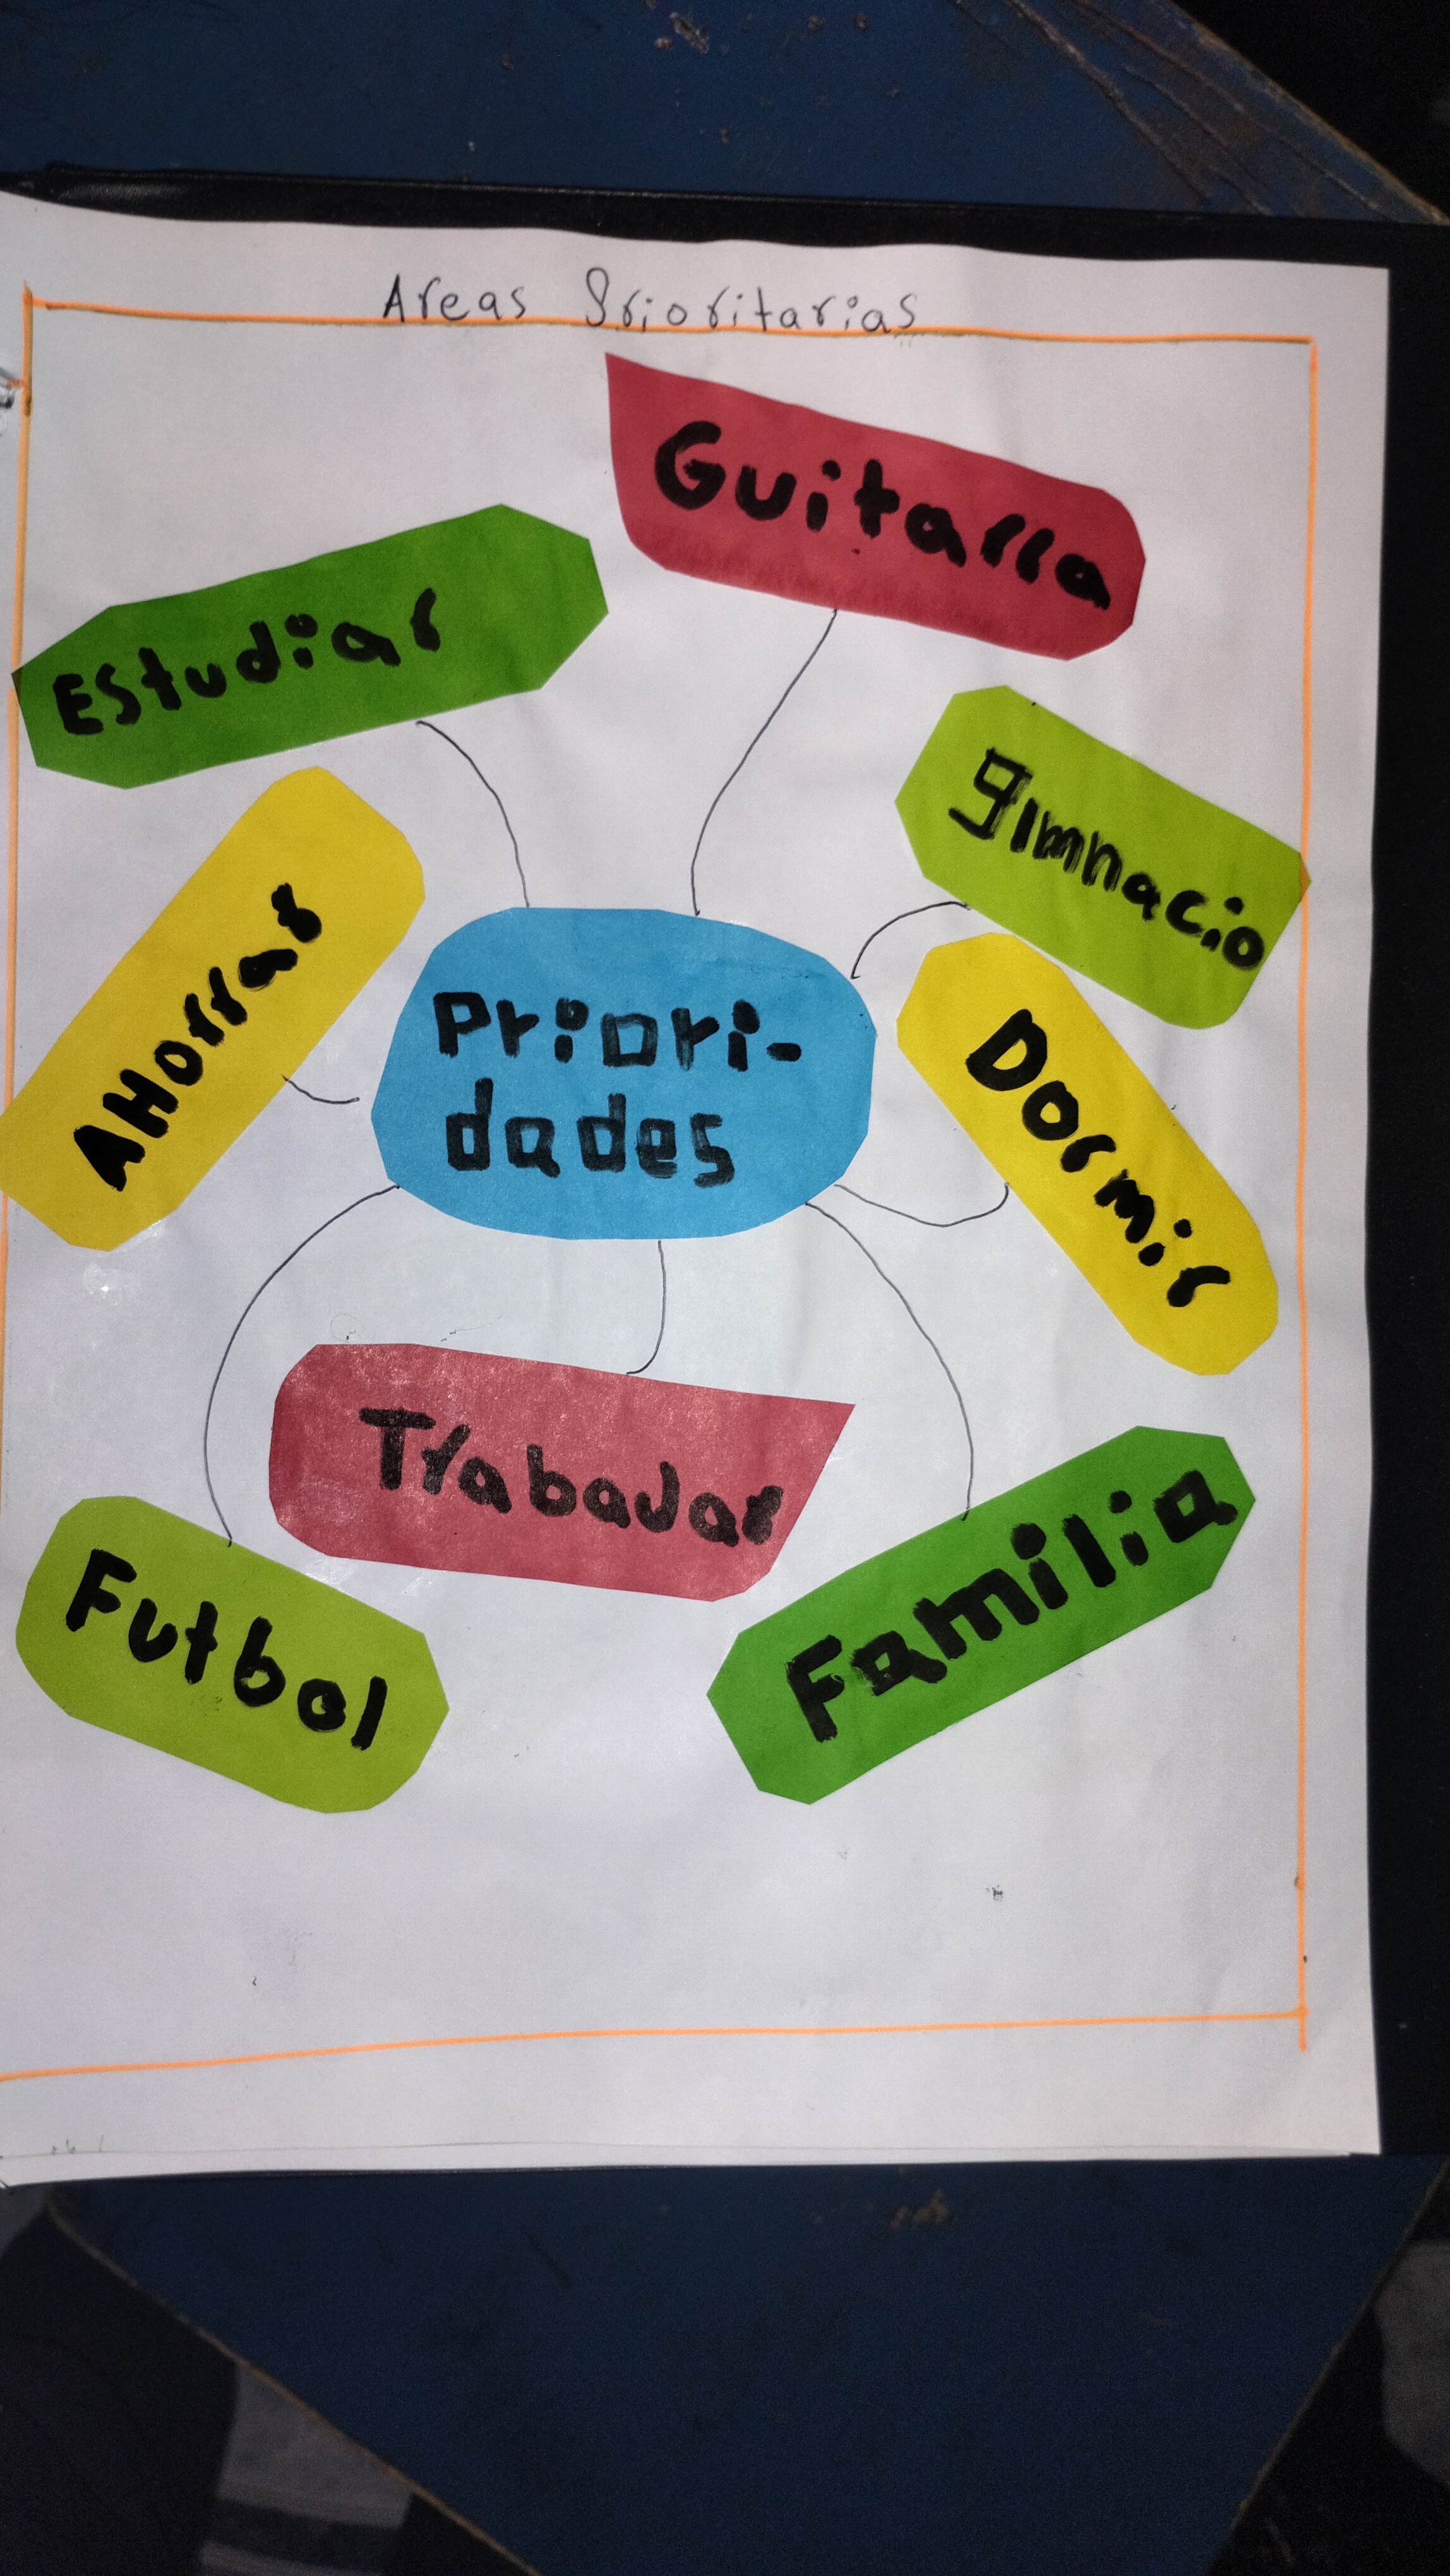 Areas Prioritarias
Guitarra
Estudiar
gimnacio
AHorrar
Priori-
dades
Dormir
Trabajar
Familia
Futbol